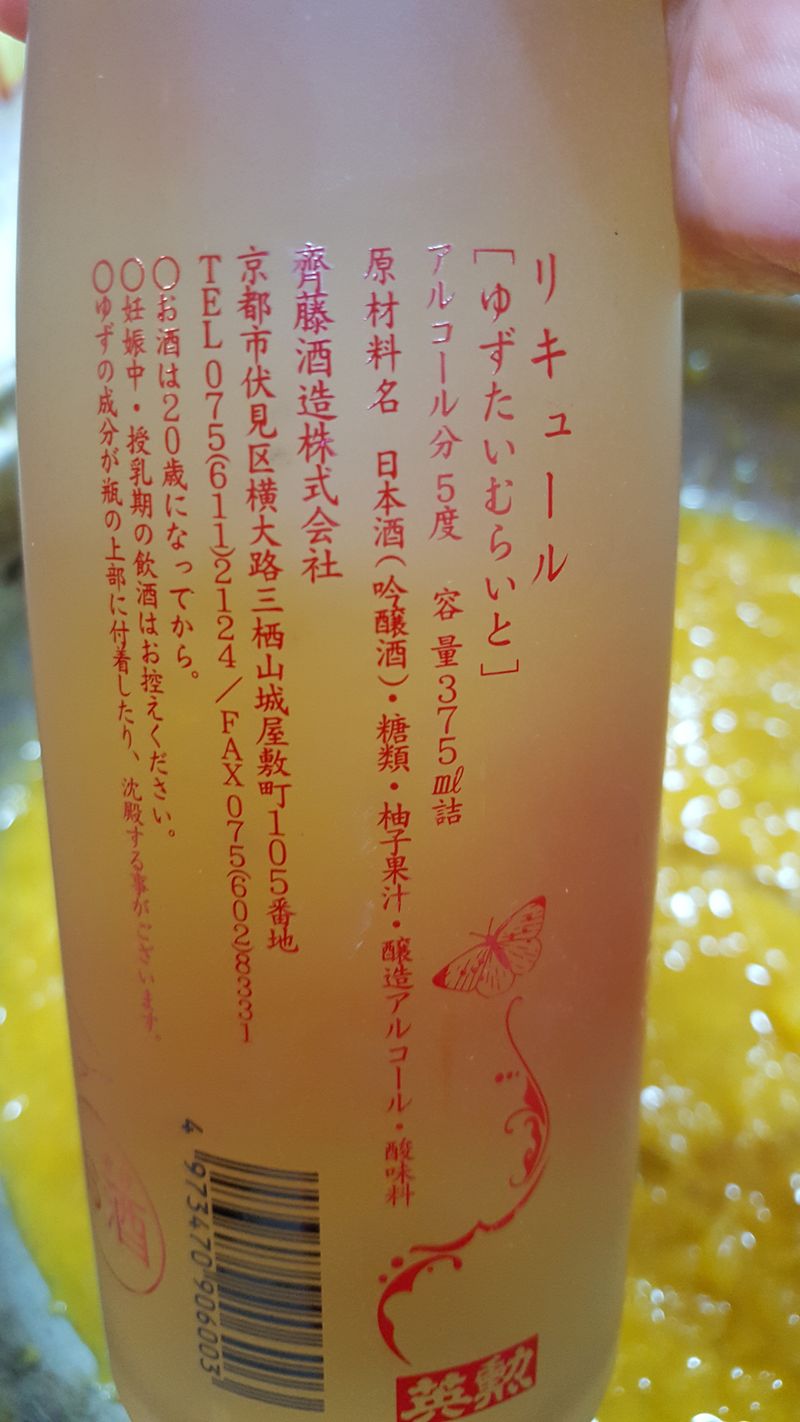 リキュール
[ゆずたいむらいと]
アルコール分5度 容量375ml詰
原材料名 日本酒(吟醸酒)・糖類・柚子果汁・醸造アルコール・酸味料
齊藤酒造株式会社
京都市伏見区横大路三栖山城屋敷町105番地
TEL075(611)2124/FAX075(602)8331
○お酒は20歳になってから。
○妊娠中・授乳期の飲酒はお控えください。
○ゆずの成分が瓶の上部に付着したり、沈殿する事がございます。
酒
4 973470 906003
英勲